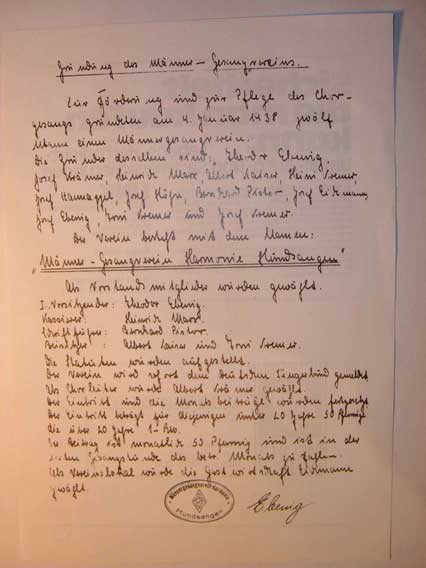 Gründung des Männer-Gesangvereins.
Zur Förderung und zur Pflege des Chor-
gesangs gründeten am 4. Januar 1938 zwölf
Mann einen Männergesangverein.
Die Gründer desselben sind: Theodor Ebenig,
Josef Krämer, Heinrich Marx, Albert Kaiser, Heini Kremer,
Josef Hannappel, Josef Höhn, Bernhard Pistor, Josef Eidmann,
Josef Ebenig, Toni Kremer und Josef Kremer.
Der Verein besteht mit dem Namen:
"Männer-Gesangverein Harmonie Hundsangen"
Als Vorstandsmitglieder wurden gewählt.
I. Vorsitzender: Theodor Ebenig.
Kassierer: Heinrich Marx.
Schriftführer: Bernhard Pistor.
Beisitzer: Albert Kaiser und Toni Kremer.
Die Statuten wurden aufgestellt.
Der Verein wird sofort dem Deutschen Sängerbund gemeldet.
Als Chorleiter wurde Albert Krämer gewählt.
Der Eintritt und die Monatsbeiträge wurden festgesetzt.
Der Eintritt beträgt für diejenigen unter 20 Jahre 50 Pfennig
die über 20 Jahre 1-
Der Beitrag ist monatlich 50 Pfennig und ist in der
ersten Gesangstunde des betr. Monats zu zahlen.
Als Vereinslokal wurde die Gastwirtschaft Eidmann
gewählt.
Männergesangverein Harmonie
Hundsangen
Ebenig